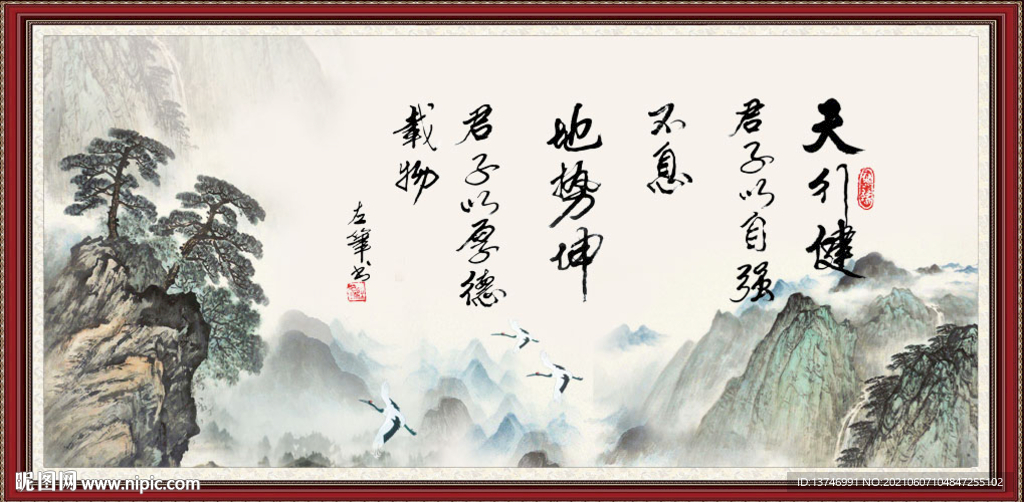 天行健
君子以自强
不息
地势坤
君子以厚德
载物
左笔书
昵图网 www.nipic.com
ID:13746991 NO:20210607104847255102